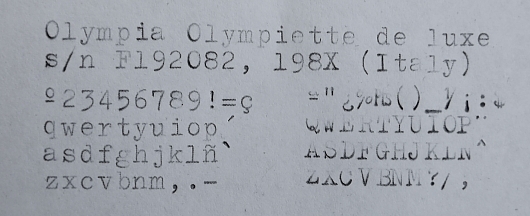 Olympia Olympiette de luxe
s/n F192082, 198X (Italy)
º23456789!=ç
qwertyuiop´ QWERTYUIOP¨
asdfghjklñ` ASDFGHJKLÑ^
zxcvbnm,.- ZXCVBNM?/,